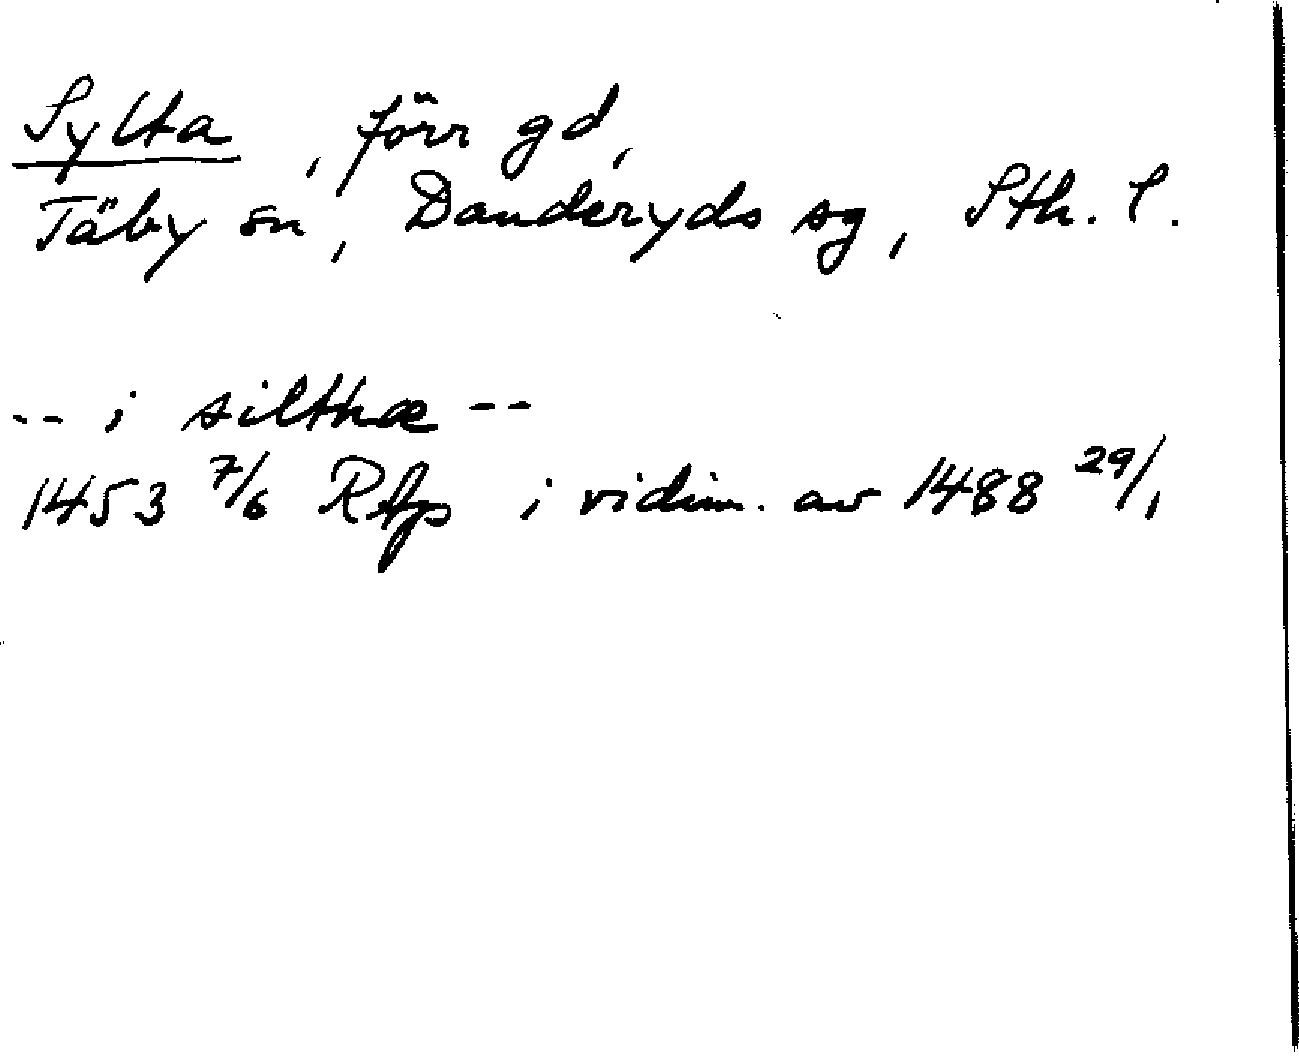 Sylta, förr gd,
Täby sn, Danderyds sg, Sth. l.
-- i silthæ --
1453 7/6 RAp i vidim. av 1488 29/1